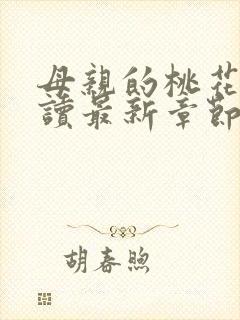 母親的桃花
讀最新章節
胡春煦